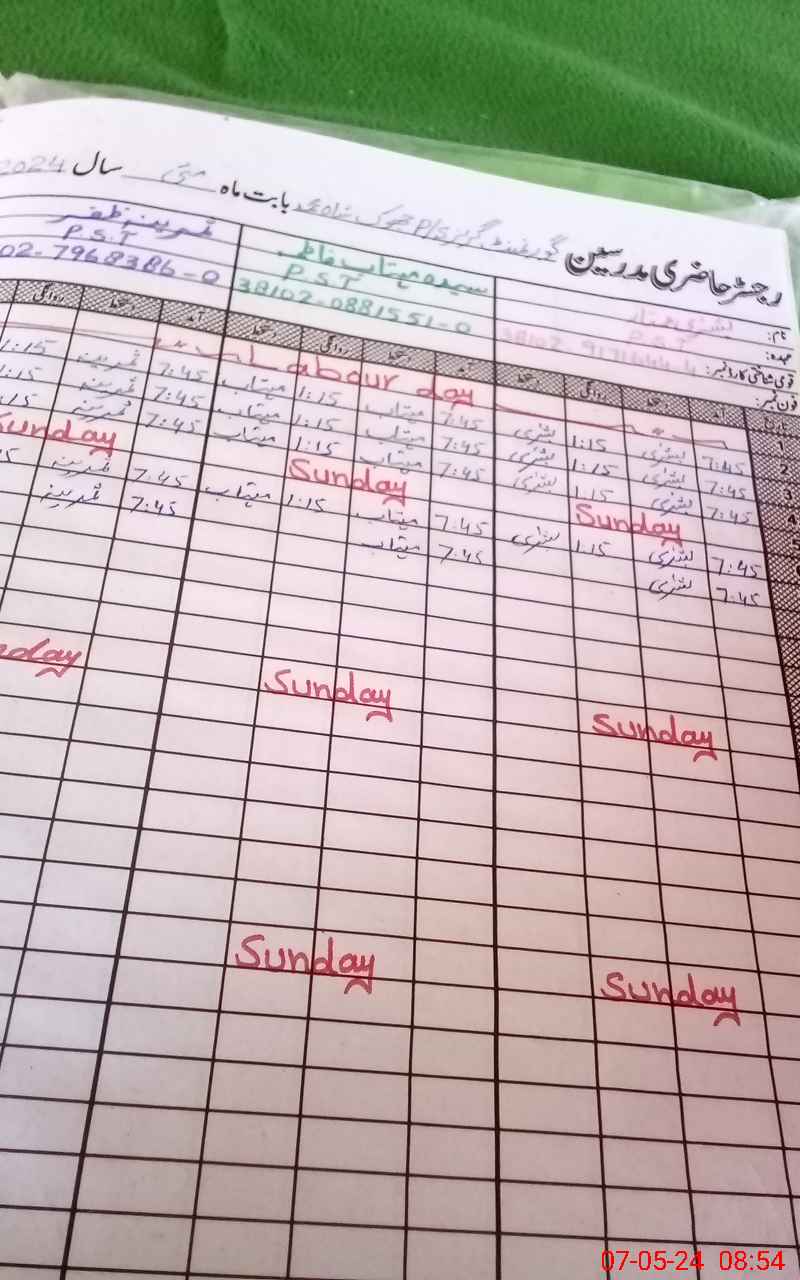 رجسٹر حاضری مدرسین گورنمنٹ گرلز P/S جھوک شاہ محمد بابت ماہ مئی سال 2024
نام: بشریٰ ممتاز سیدہ مہتاب فاطمہ ثمرینہ ظفر
عہدہ: P.S.T P.S.T P.S.T
قومی شناختی کارڈ نمبر: 38102-0881551-0 02-7968386-0
فون نمبر:
آمد دستخط روانگی دستخط آمد دستخط روانگی دستخط آمد دستخط روانگی
1 Labour day
2 7:45 بشریٰ 1:15 بشریٰ 7:45 مہتاب 1:15 مہتاب 7:45 ثمرینہ 1:15
3 7:45 بشریٰ 1:15 بشریٰ 7:45 مہتاب 1:15 مہتاب 7:45 ثمرینہ 1:15
4 7:45 بشریٰ 1:15 بشریٰ 7:45 مہتاب 1:15 مہتاب 7:45 ثمرینہ 15
Sunday Sunday Sunday
7:45 بشریٰ 1:15 بشریٰ 7:45 مہتاب 1:15 مہتاب 7:45 ثمرینہ 5
7:45 بشریٰ 7:45 مہتاب 7:45 ثمرینہ
Sunday Sunday nday
Sunday Sunday
07-05-24 08:54